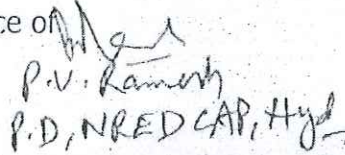 ce of
P.V. Ramesh
P.D, NREDCAP, Hyd